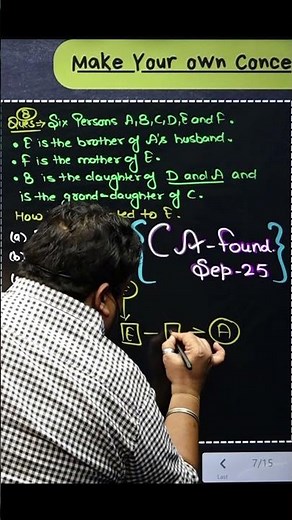 Make Your own Conce
⑧
Ques:→ Six Persons A, B, C, D, E and F.
• E is the brother of A's husband.
• F is the mother of E.
• B is the daughter of D and A and
is the grand-daughter of C.
How to E.
CA-found.
Sep-25
(a)
(b)
E — = A
< 7/15
Last